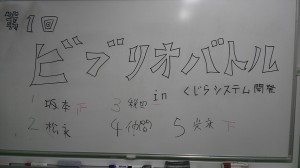 第1回
ビブリオバトル
in くじらシステム開発
1 坂本 下 3
2 松永 4 5 下